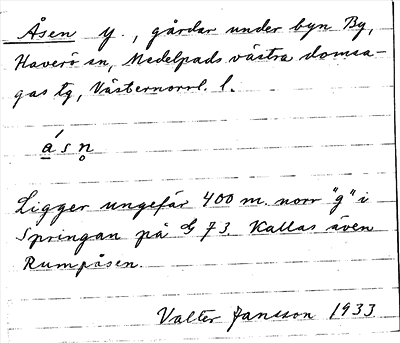 Åsen y., gårdar under byn By,
Haverö sn, Medelpads västra domsa-
gas tg, Västernorrl. l.
ásn̥
Ligger ungefär 400 m. norr "g" i
Springan på G 73. Kallas även
Rumpåsen.
Valter Jansson 1933